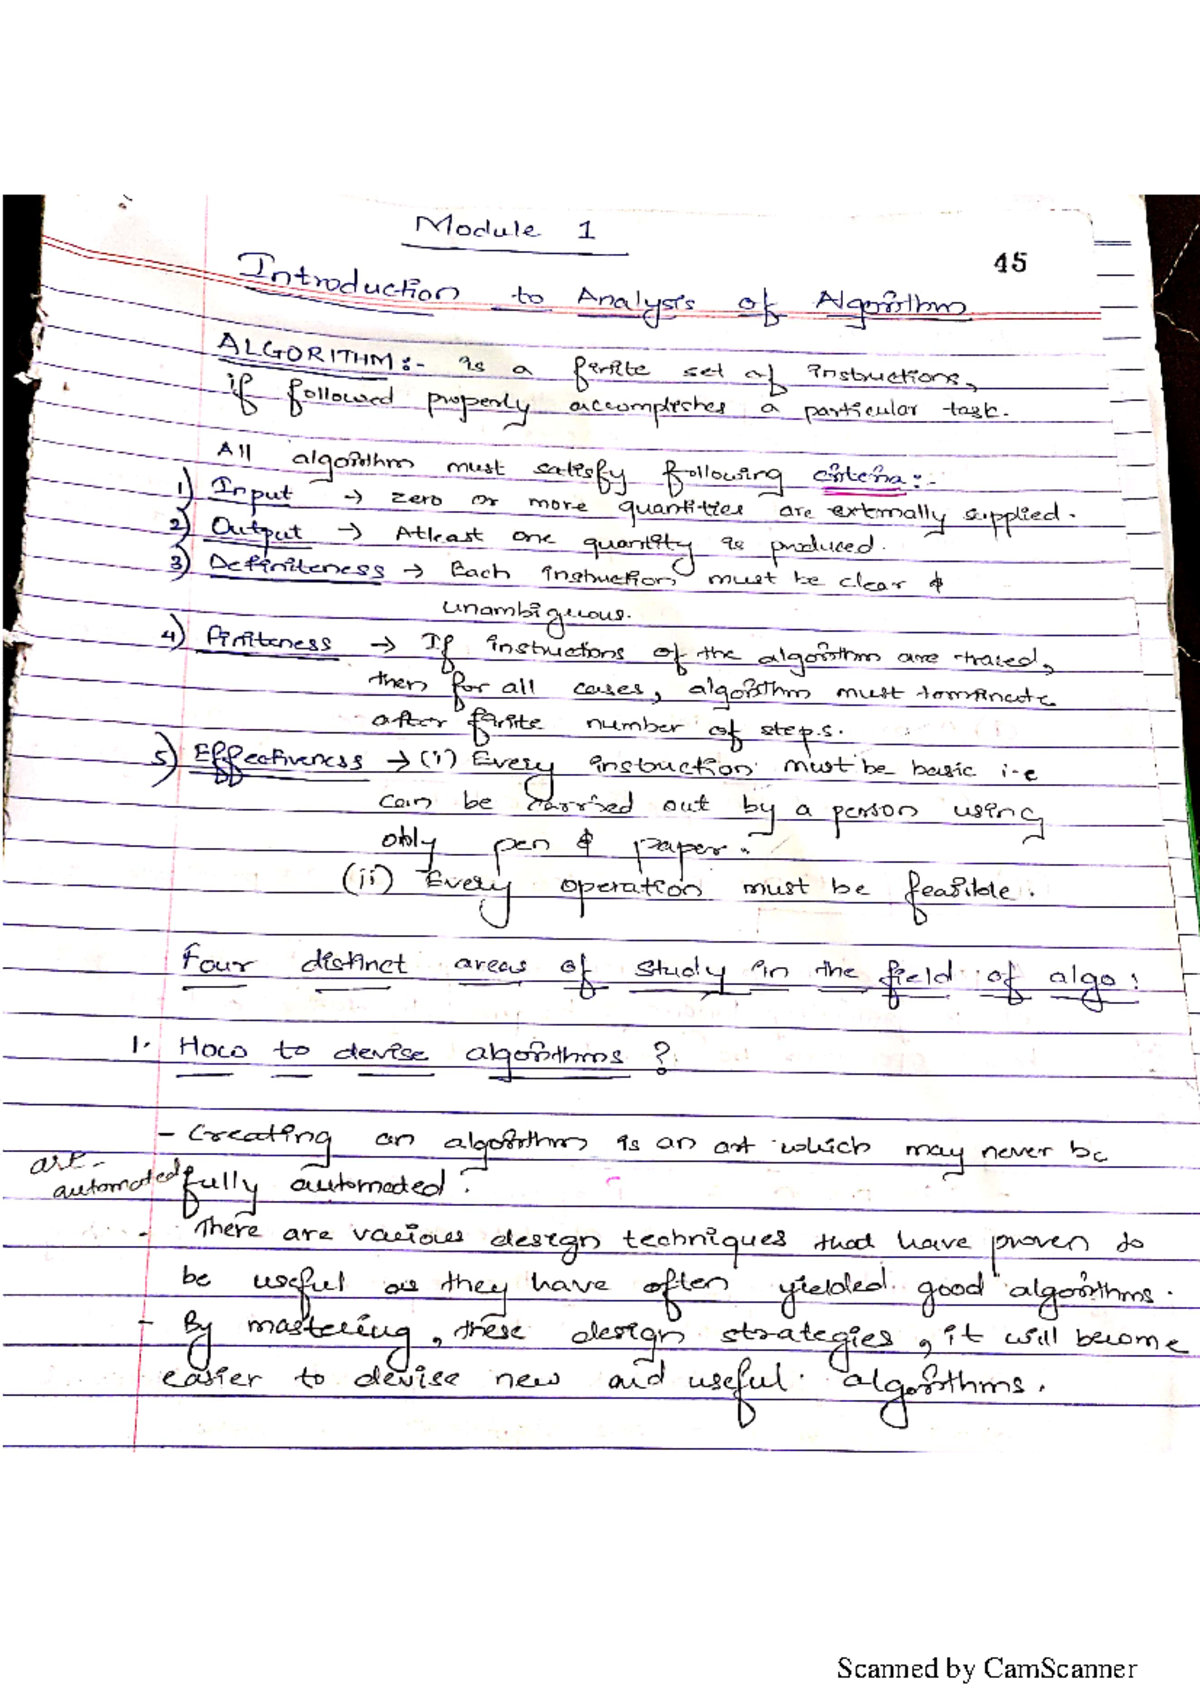 Module 1
45
Introduction to Analysis of Algorithm
ALGORITHM:- is a finite set of instructions,
if followed properly accomplishes a particular task.
All algorithm must satisfy following criteria:-
1) Input → zero or more quantities are externally supplied.
2) Output → Atleast one quantity is produced.
3) Definiteness → Each instruction must be clear &
unambiguous.
4) Finiteness → If instructions of the algorithm are traced,
then for all cases, algorithm must terminate
after finite number of steps.
5) Effectiveness → (i) Every instruction must be basic i.e
can be carried out by a person using
only pen & paper.
(ii) Every operation must be feasible.
Four distinct areas of study in the field of algo:
1. How to devise algorithms?
- Creating an algorithm is an art which may never be
are
automated fully automated.
- There are various design techniques that have proven to
be useful as they have often yielded good algorithms.
- By mastering, these design strategies, it will become
easier to devise new and useful algorithms.
Scanned by CamScanner